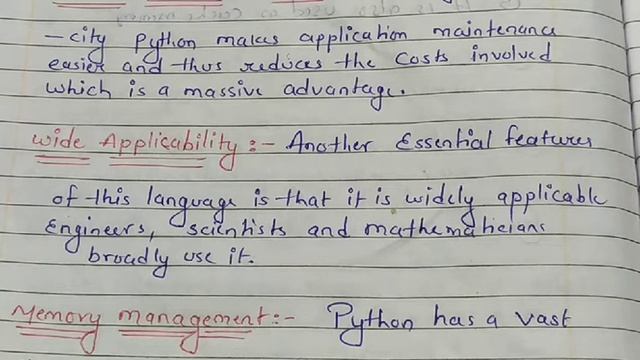 -city Python makes application maintenance
easier and thus reduces the costs involved
which is a massive advantage.
Wide Applicability :- Another Essential features
of this language is that it is widely applicable
Engineers, scientists and mathematicians
broadly use it.
Memory management :- Python has a vast